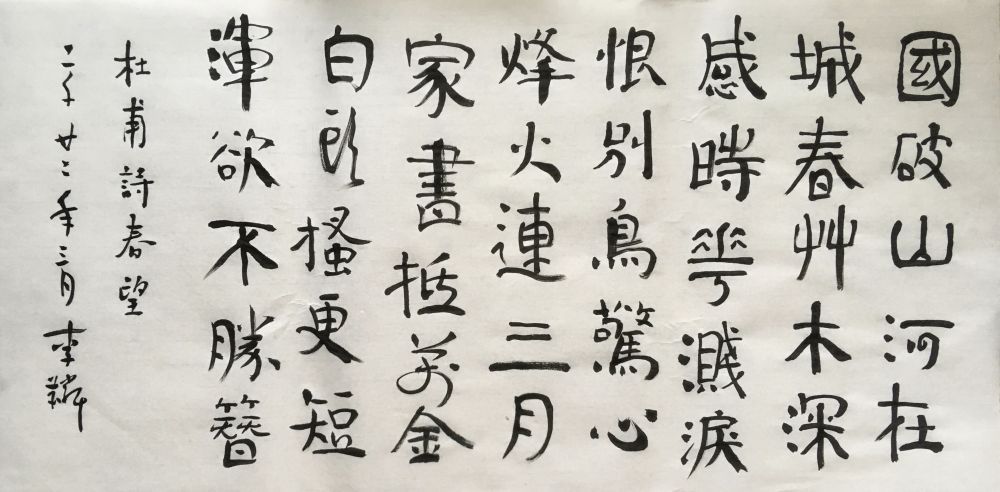 國破山河在
城春艸木深
感時華濺淚
恨別鳥驚心
烽火連三月
家書抵萬金
白頭搔更短
渾欲不勝簪
杜甫詩春望
二千廿二年三月李